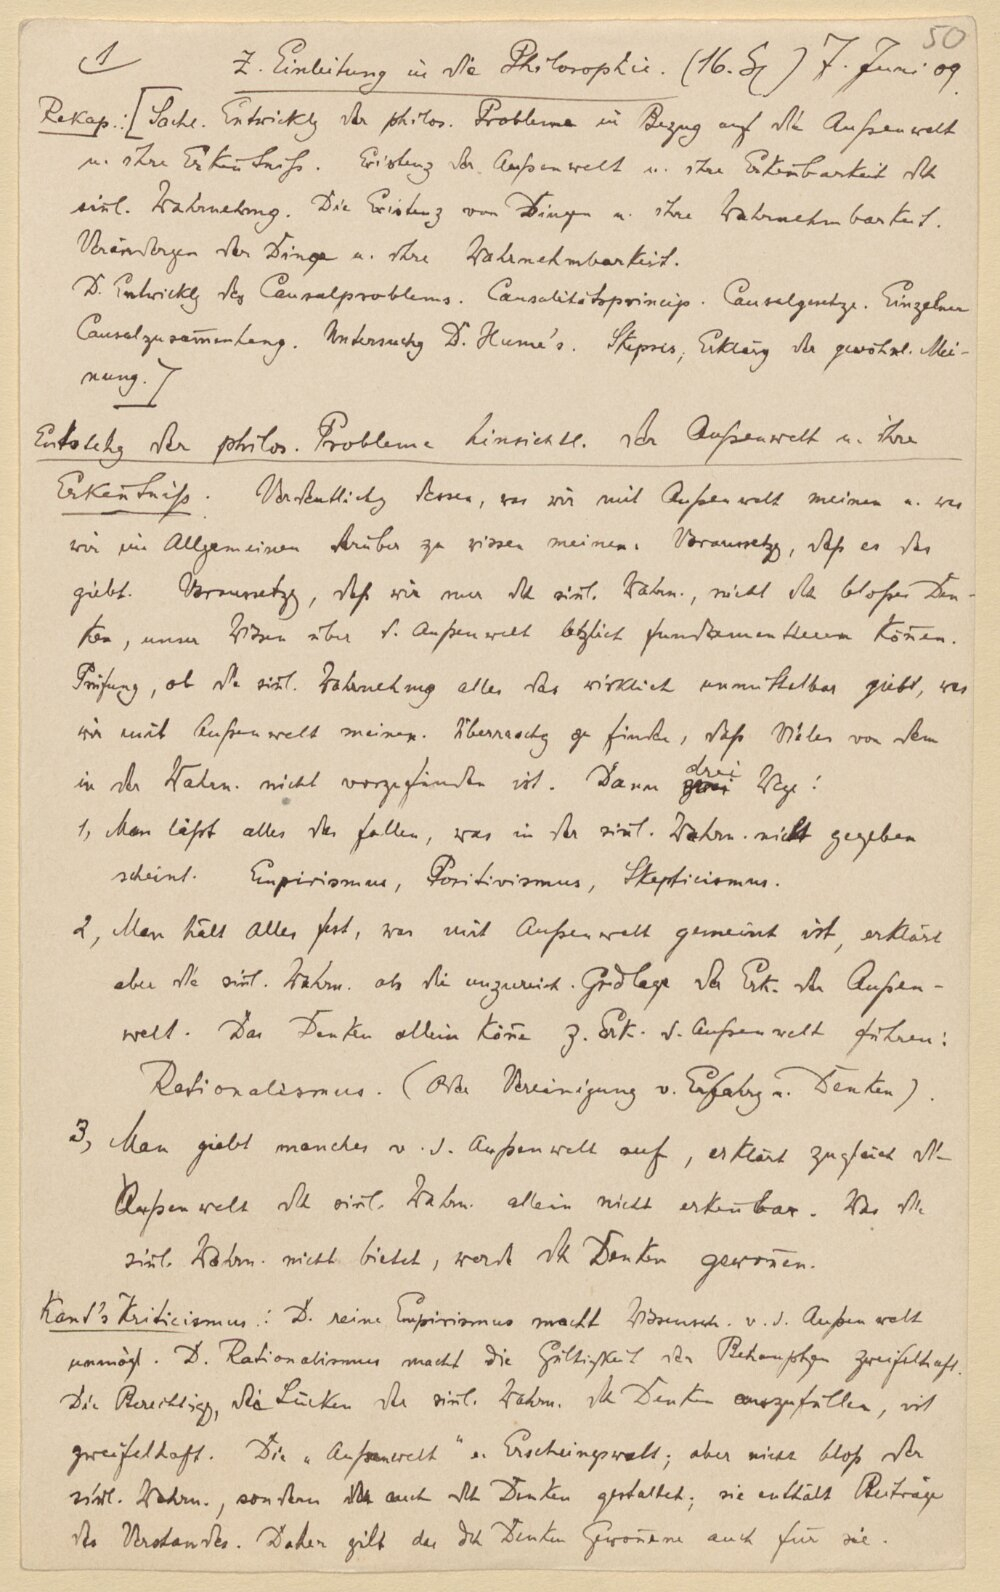 50
1 Z. Einleitung in die Philosophie. (16. ) 7. Juni 09.
Rekap.: [Sachl. Entwicklg der philos. Probleme in Bezug auf die Außenwelt
u. ihre Erkeñtniß. Existenz der Außenwelt u. ihre Erkeñbarkeit dch
siñl. Wahrnehmg. Die Existenz von Dingen u. ihre Wahrnehmbarkeit.
Veränderngen der Dinge u. ihre Wahrnehmbarkeit.
D. Entwicklg des Causalproblems. Causalitätsprincip. Causalgesetze. Einzelner
Causalzusam̃enhang. Untersuchg D. Hume's. Skepsis, Erklärg der gewöhnl. Mei-
nung.]
Entstehg der philos. Probleme hinsichtl. der Außenwelt u. ihre
Erkeñtniß. Verdeutlichg dessen, was wir mit Außenwelt meinen u. was
wir im Allgemeinen darüber zu wissen meinen. Voraussetzg, daß es das
giebt. Voraussetzg, daß wir nur dch siñl. Wahrn., nicht dch bloßes Den-
ken, unser Wissen über d. Außenwelt letztlich fundamentieren köñen.
Prüfung, ob die siñl. Wahrnehmg alles das wirklich unmittelbar giebt, was
wir mit Außenwelt meinen. Überraschg zu finden, daß Vieles von dem
in der Wahrn. nicht vorzufinden ist. Dann zwei drei Wege:
1, Man läßt alles das fallen, was in der siñl. Wahrn. nicht gegeben
scheint. Empirismus, Positivismus, Skepticismus.
2, Man hält Alles fest, was mit Außenwelt gemeint ist, erklärt
aber die siñl. Wahrn. als die unzureich. Grdlage der Erk. der Außen-
welt. Das Denken allein köñe z. Erk. d. Außenwelt führen:
Rationalismus. (Oder Vereinigung v. Erfahrg u. Denken).
3, Man giebt manches v. d. Außenwelt auf, erklärt zugleich die
Außenwelt dch siñl. Wahrn. allein nicht erkeñbar. Was die
siñl. Wahrn. nicht bietet, werde dch Denken gewoñen.
Kant's Kriticismus.: D. reine Empirismus macht Wissensch. v. d. Außenwelt
unmögl. D. Rationalismus macht die Gültigkeit der Behauptgen zweifelhaft.
Die Berechtigg, die Lücken der siñl. Wahrn. dch Denken auszufüllen, ist
zweifelhaft. Die „Außenwelt" e. Erscheingswelt; aber nicht bloß der
siñl. Wahrn., sondern auch dch Denken gestaltet; sie enthält Beiträge
des Verstandes. Daher gilt das dch Denken Gewoñene auch für sie.